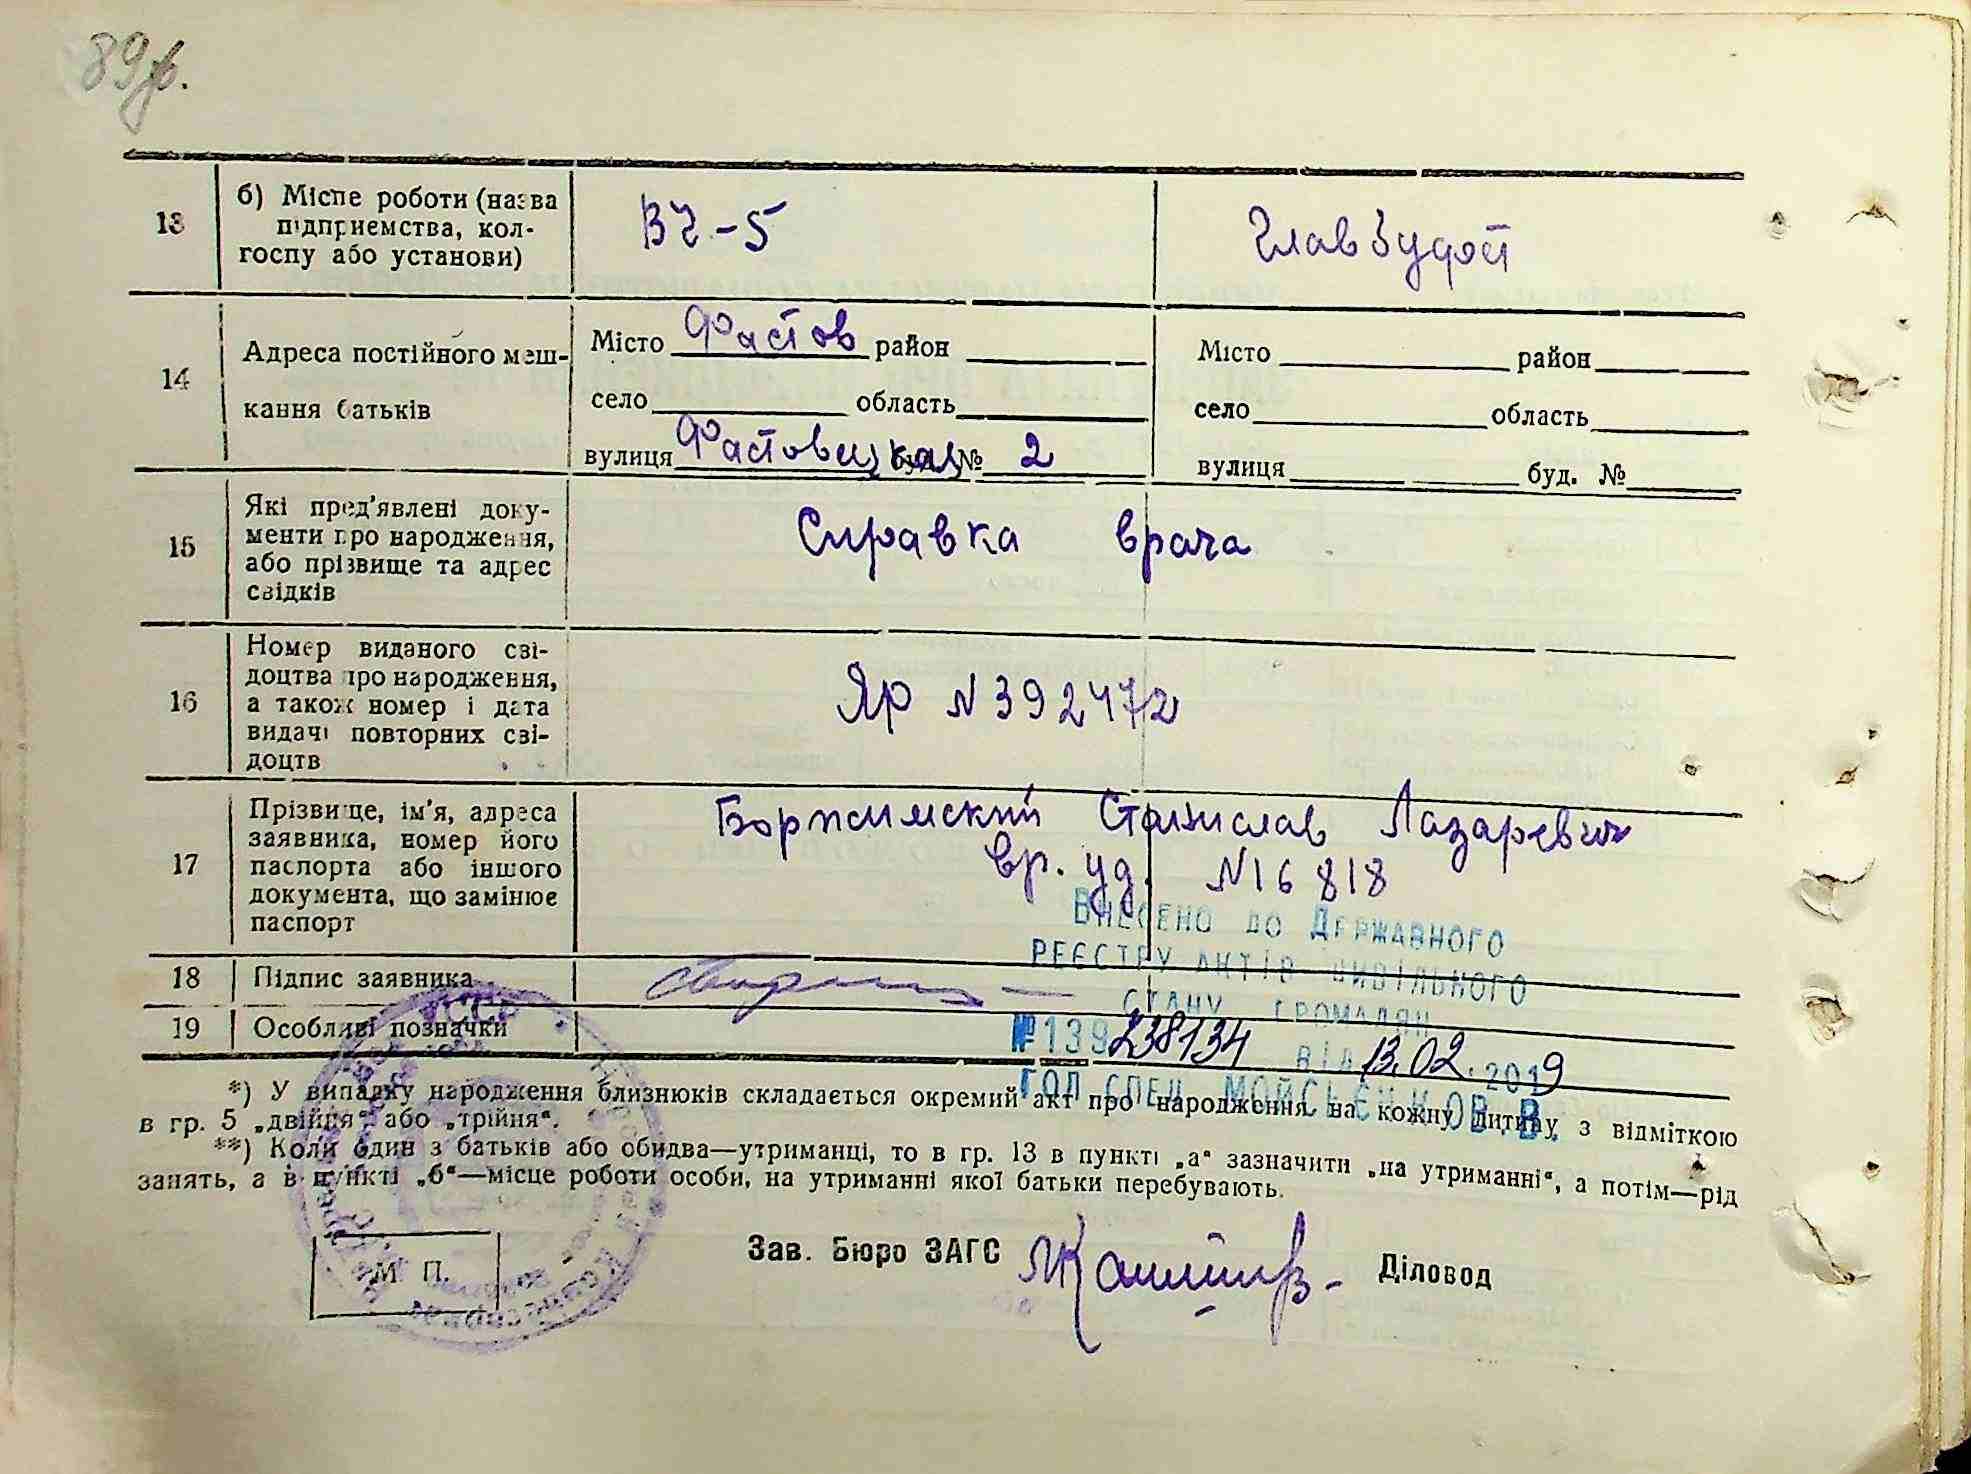 89
13
б) Місце роботи (назва
підприємства, кол-
госпу або установи)
ВЧ-5
14
Адреса постійного меш-
кання батьків
Місто Фастов район
село область
вулиця Фастовецкая буд. № 2
Місто район
село область
вулиця буд. №
15
Які пред'явлені доку-
менти про народження,
або прізвище та адрес
свідків
Справка врача
16
Номер виданого сві-
доцтва про народження,
а також номер і дата
видачі повторних сві-
доцтв
Яр N 392472
17
Прізвище, ім'я, адреса
заявника, номер його
паспорта або іншого
документа, що замінює
паспорт
Боржимский Станислав Лазаревич
вр. уд. N16818
ВНЕСЕНО ДО ДЕРЖАВНОГО
РЕЄСТРУ АКТІВ ЦИВІЛЬНОГО
СТАНУ ГРОМАДЯН
18
Підпис заявника
19
Особливі позначки
№139 238134 ВІД 13.02.2019
ГОЛ.СПЕЦ. МОЙСЬЄНКО В.В.
*) У випадку народження близнюків складається окремий акт про народження на кожну дитину з відміткою
в гр. 5 „двійня“ або „трійня“.
**) Коли один з батьків або обидва—утриманці, то в гр. 13 в пункті „а“ зазначити „на утриманні“, а потім—рід
занять, а в пункті „б“—місце роботи особи, на утриманні якої батьки перебувають.
УССР
М П.
Зав. Бюро ЗАГС
Діловод